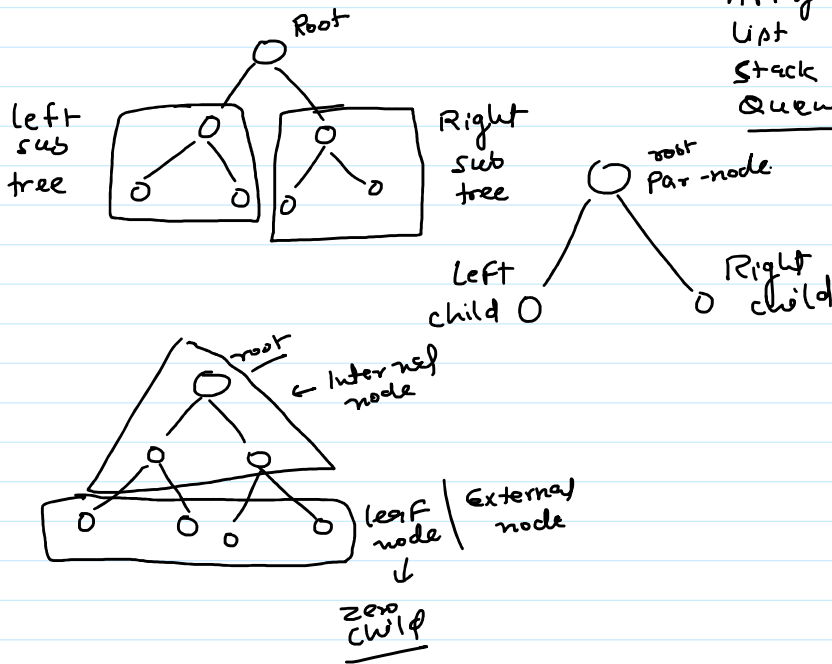 Root
List
Stack
left
sub
tree
Right
sub
tree
root
Par-node
Left
child
Right
child
root
← Internal
node
leaf
node
External
node
zero
child